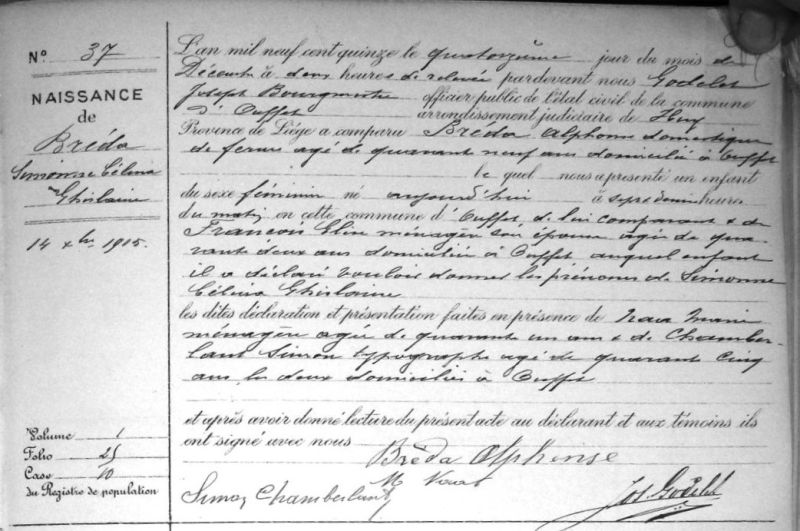 N° 37
NAISSANCE
de
Bréda
Simonne Célina
Ghislaine
14 xbre 1915.
Volume 1
Folio 25
Case 10
du Registre de population
L'an mil neuf cent quinze le quatorzième jour du mois de
Décembre à deux heures de relevée pardevant nous Godelet
Joseph Bourgmestre officier public de l'état civil de la commune
d'Ouffet arrondissement judiciaire de Huy
Province de Liège a comparu Bréda Alphonse domestique
de ferme agé de quarante neuf ans domicilié à Ouffet
le quel nous a présenté un enfant
du sexe féminin né aujourd'hui à sept heures
du matin en cette commune d'Ouffet de lui comparant & de
François Elise ménagère son épouse agée de qua-
rante deux ans domiciliée à Ouffet auquel enfant
il a déclaré vouloir donner les prénoms de Simonne
Célina Ghislaine
les dites déclaration et présentation faites en présence de Marie
ménagère agée de quarante un ans & de Chamber-
lant Simon typographe agé de quarante cinq
ans, les deux domiciliés à Ouffet
et après avoir donné lecture du présent acte au déclarant et aux témoins ils
ont signé avec nous
Bréda Alphonse
Simon Chamberlant M
Jos. Godelet